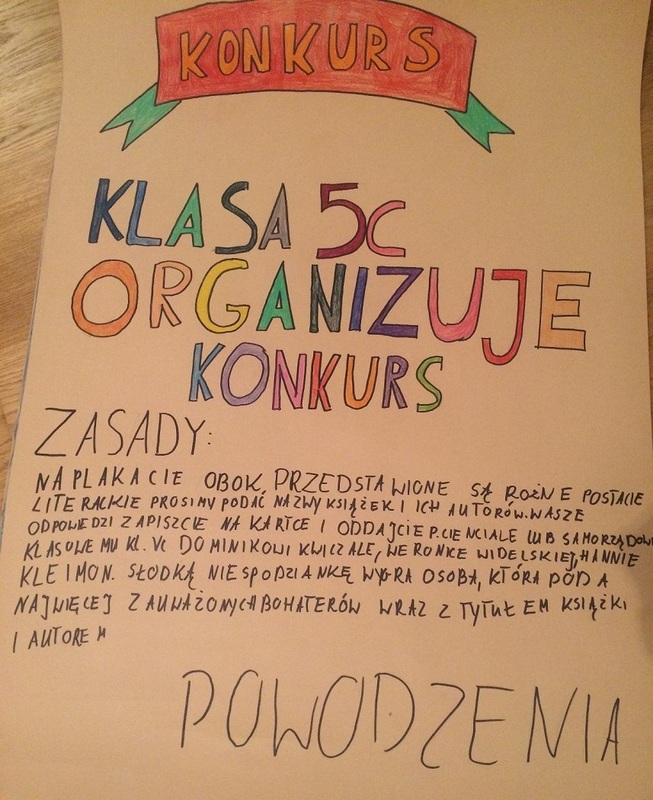 KONKURS
KLASA 5C
ORGANIZUJE
KONKURS
ZASADY:
NA PLAKACIE OBOK, PRZEDSTAWIONE SĄ ROŻNE POSTACIE
LITERACKIE PROSIMY PODAĆ NAZWY KSIĄŻEK I ICH AUTORÓW. WASZE
ODPOWIEDZI ZAPISZCIE NA KARTCE I ODDAJCIE P. CIENCIALE LUB SAMORZĄDOWI
KLASOWEMU KL. VC DOMINIKOWI KWICZALE, WERONCE WIDELSKIEJ, HANNIE
KLEIMON. SŁODKĄ NIESPODZIANKĘ WYGRA OSOBA, KTÓRA PODA
NAJWIĘCEJ ZAUWAŻONYCH BOHATERÓW WRAZ Z TYTUŁEM KSIĄŻKI
I AUTOREM
POWODZENIA